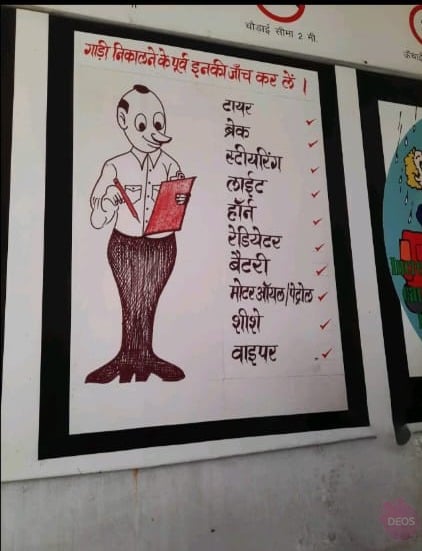 चौडाई सीमा 2 मी.
गाड़ी निकालने के पूर्व इनकी जाँच कर लें ।
टायर
ब्रेक
स्टीयरिंग
लाईट
हॉर्न
रेडियेटर
बैटरी
मोटर ऑयल/पेट्रोल
शीशे
वाइपर
DEOS